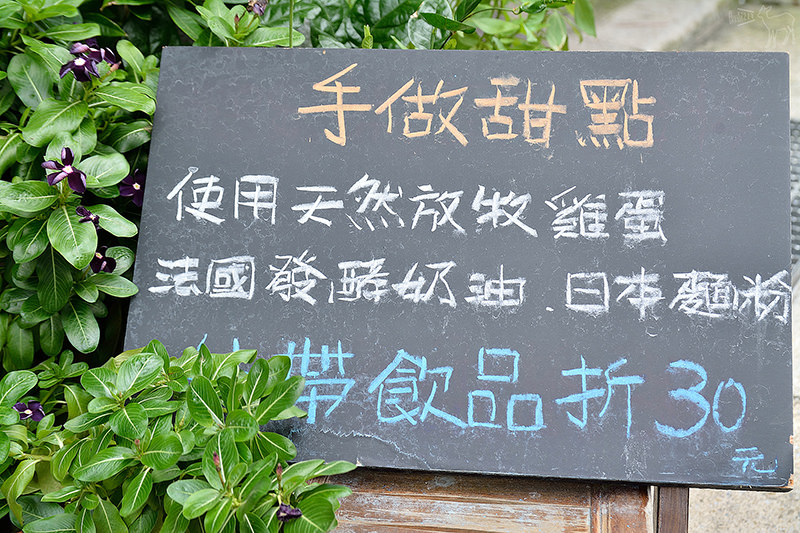 手做甜點
使用天然放牧雞蛋
法國發酵奶油.日本麵粉
帶飲品折30
元